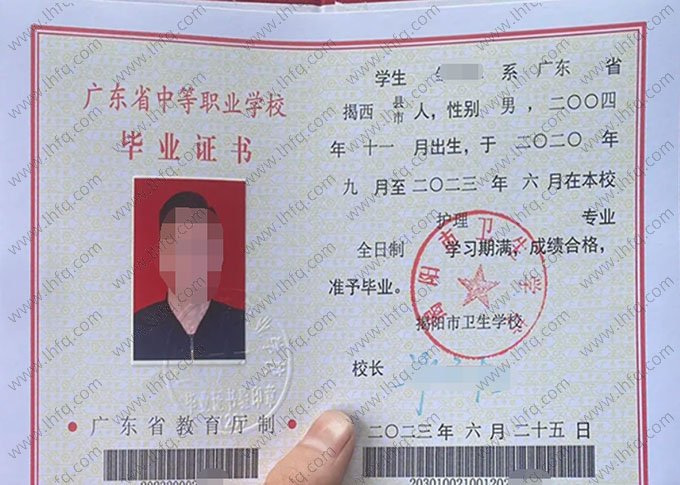 广东省中等职业学校
毕业证书
广东省教育厅制
学生 系 广东 省
揭西 县市 人，性别 男，二〇〇四
年 十一 月出生，于 二〇二〇 年
九 月至 二〇二三 年 六 月在本校
护理 专业
全日制 学习期满，成绩合格，
准予毕业。
揭阳市卫生学校
揭阳市卫生学校
校长
二〇二三年 六 月 二十五 日
www.lhfq.com